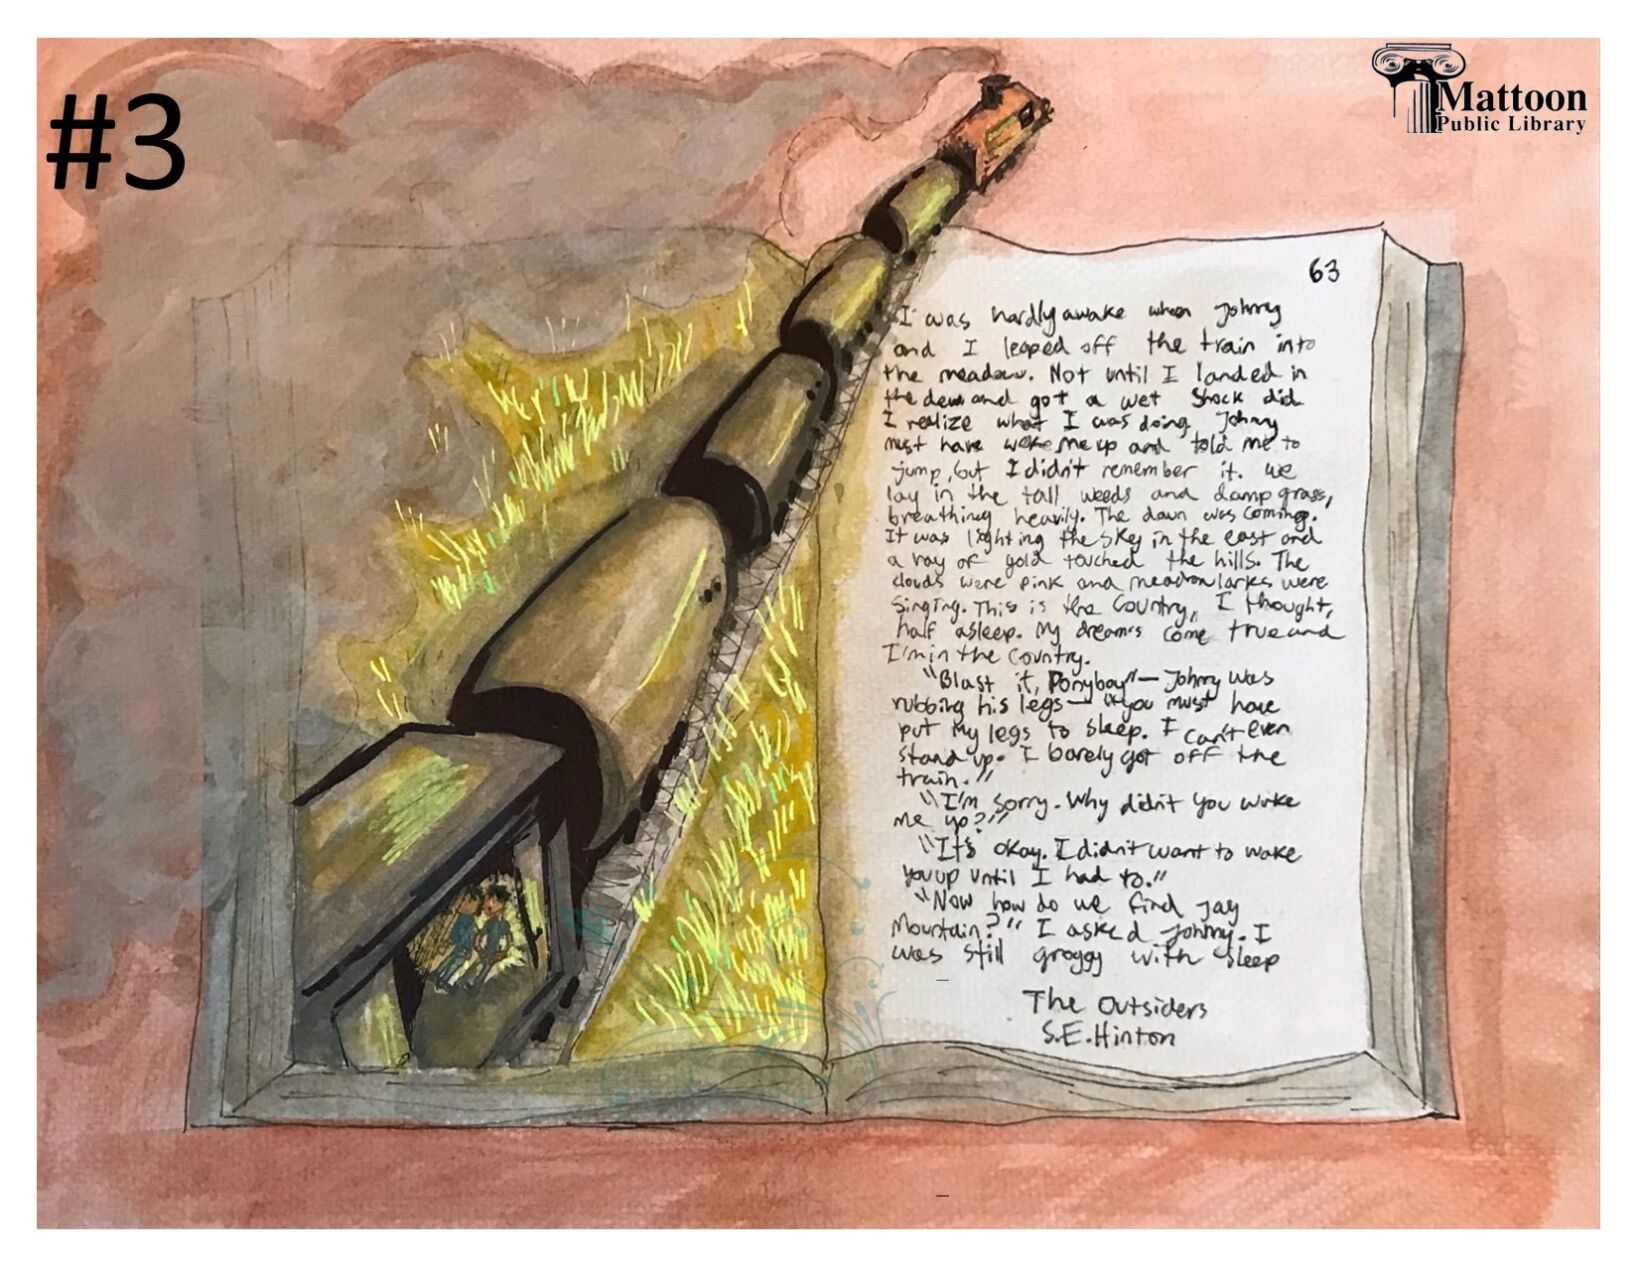 #3
Mattoon
Public Library
63
I was hardly awake when Johnny
and I leaped off the train into
the meadow. Not until I landed in
the dew and got a wet shock did
I realize what I was doing. Johnny
must have woke me up and told me to
jump, but I didn't remember it. We
lay in the tall weeds and damp grass,
breathing heavily. The dawn was coming.
It was lighting the sky in the east and
a ray of gold touched the hills. The
clouds were pink and meadow larks were
singing. This is the country, I thought,
half asleep. My dream's come true and
I'm in the country.
"Blast it, Ponyboy"— Johnny was
rubbing his legs— "you must have
put my legs to sleep. I can't even
stand up. I barely got off the
train."
"I'm sorry. Why didn't you wake
me up?"
"It's okay. I didn't want to wake
you up until I had to."
"Now how do we find Jay
Mountain?" I asked Johnny. I
was still groggy with sleep
The Outsiders
S.E. Hinton